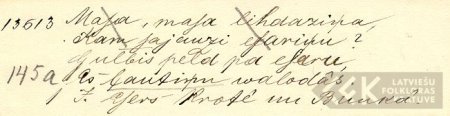 13613 Masa, masa lihdaziņa,
Kam sajauzi esariņu?
Gulbis peld pa esaru,
145a Es ļautiņu walodâs.
J. Esers Krotē un Bunkâ
LATVIEŠU
FOLKLORAS
KRĀTUVE